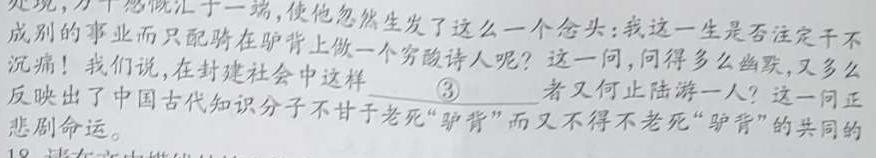 处境,万千感慨汇于一端,使他忽然生发了这么一个念头:我这一生是否注定干不
成别的事业而只配骑在驴背上做一个穷酸诗人呢?这一问,问得多么幽默,又多么
沉痛!我们说,在封建社会中这样 ③ 者又何止陆游一人?这一问正
反映出了中国古代知识分子不甘于老死“驴背”而又不得不老死“驴背”的共同的
悲剧命运。
18